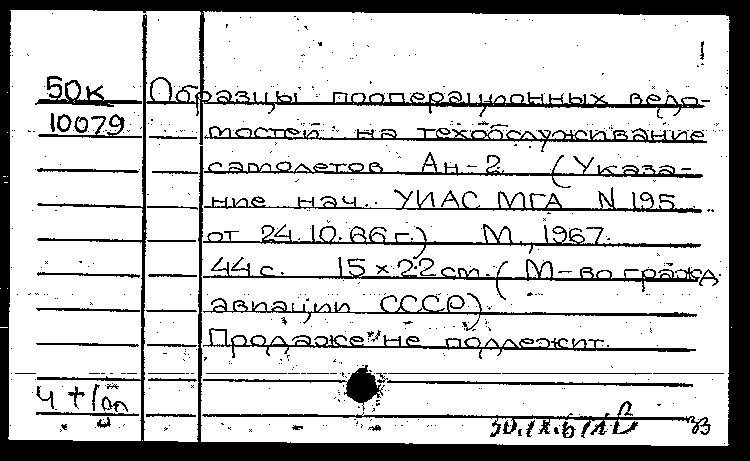 1
50к Образцы пооперационных ведо-
10079 мостей на техобслуживание
самолетов Ан-2 (Указа-
ние нач. УИАС МГА N 195
от 24.10.66 г.) М., 1967.
44 с. 15 × 22 см. (М-во гражд.
авиации СССР).
Продаже не подлежит.
33